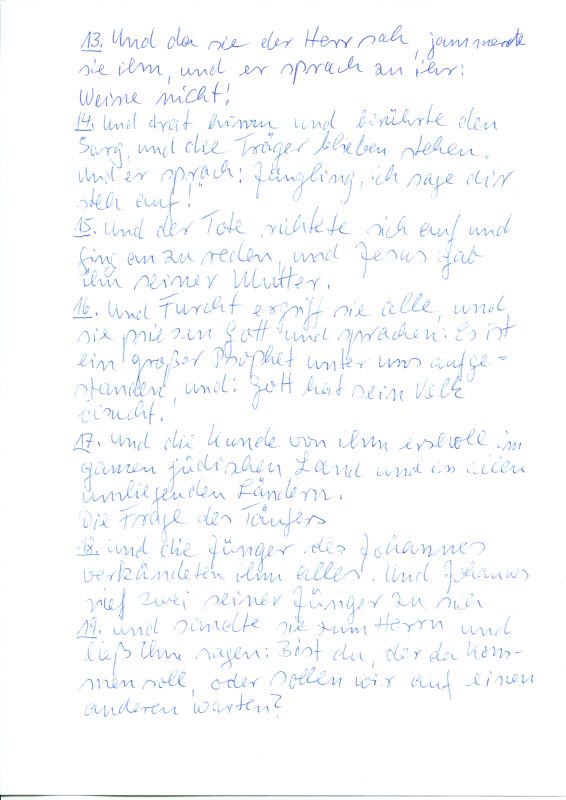 13. Und da sie der Herr sah, jammerte
sie ihm, und er sprach zu ihr:
Weine nicht!
14. Und trat hinzu und berührte den
Sarg, und die Träger blieben stehen.
Und er sprach: Jüngling, ich sage dir,
steh auf!
15. Und der Tote richtete sich auf und
fing an zu reden, und Jesus gab
ihn seiner Mutter.
16. Und Furcht ergriff sie alle, und
sie priesen Gott und sprachen: Es ist
ein großer Prophet unter uns aufge=
standen, und: Gott hat sein Volk
besucht.
17. Und die Kunde von ihm erscholl im
ganzen jüdischen Land und in allen
umliegenden Ländern.
Die Frage des Täufers
18. Und die Jünger des Johannes
verkündeten ihm alles. Und Johannes
rief zwei seiner Jünger zu sich
19. und sandte sie zum Herrn und
ließ ihm sagen: Bist du, der da kom-
men soll, oder sollen wir auf einen
anderen warten?